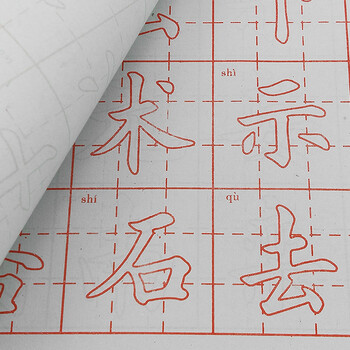 shì
术 示
shí qù
石 去